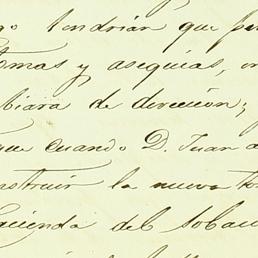 tendrían que
tomas y asequias,
biara de dirección;
que cuando D. Juan
nstruir la nueva to
acienda del soba